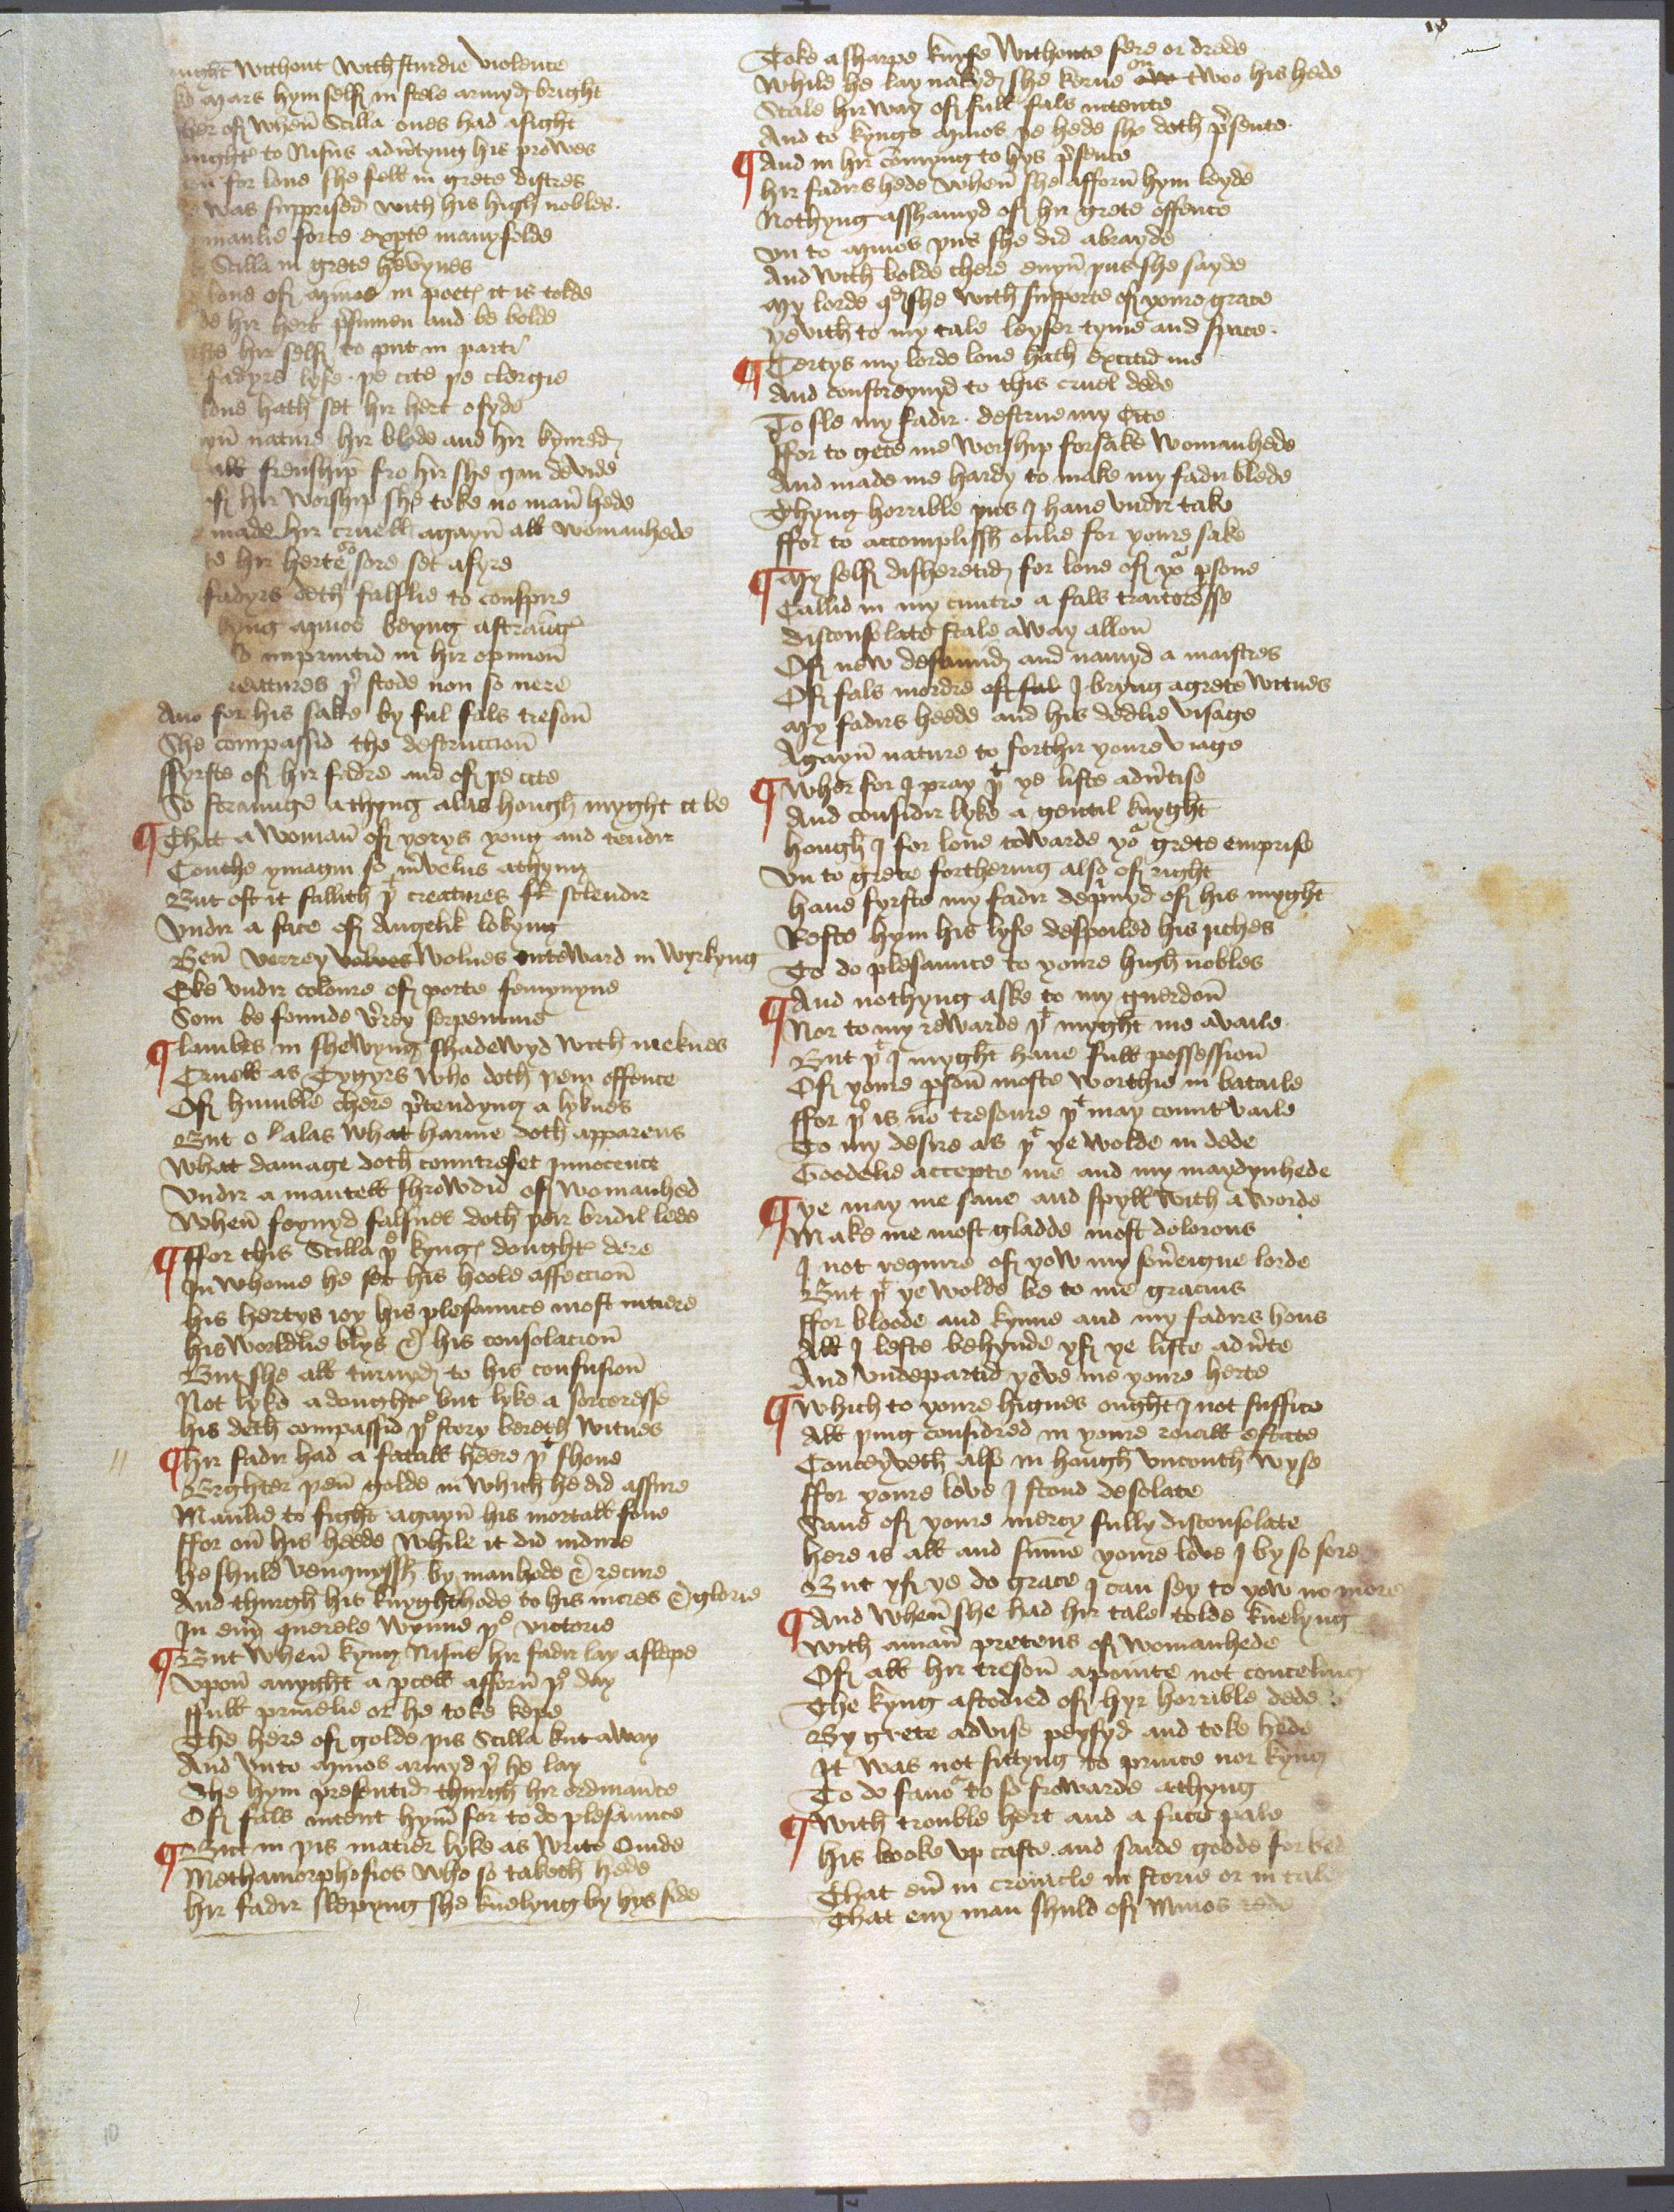 without with sturdie violence
Mars hym self in stele armyd bright
of when Scilla ones had a sight
to Nisus adutyng his prowes
for loue she fell in grete distres
was supprised with his high nobles.
manlie force expte manyfolde
Scilla in grete hevynes
loue of Mynos in poet it is tolde
hir hert psumen and be bolde
hir self to put in parti
fadyrs lyfe . þe cite þe clergie
loue hath set hir hert o fyde
nature hir blode and hir kynred
all frenship fro hir she gan devide
of hir worship she toke no man hede
made hir cruell agayn all womanhede
hir herte so sore set a fyre
fadyrs deth falslie to conspire
kyng Mynos beyng a straung
imprintid in hir opinion
creatures þr stode non so nere
And for his sake by ful fals treson
She compassid the destruccion
ffyrste of hir fadre and of þe cite
So straunge a thyng alas hough myght it be
¶ That a woman of yerys yong and tendir
Couthe ymagin so mvelus a thyng
But oft it fallith þt creatures sclendir
Vndir a face of Angelik lokyng
Ben verrey wolves wolues outeward in wyrkyng
Eke vndir coloure of porte femynyne
Som be founde vrey serpentine
¶ lambes in shewyng shadewyd with meknes
Cruell as Tygyrs who doth þem offence
Of humble chere ptendyng a lyknes
But o alas what harme doth apparens
What damage doth countrefet Innocence
Vndir a mantell shrowdid of womanhed
When feynyd falsnes doth þeir bridil lede
¶ ffor this Scilla þe kyng dought dere
In whome he set his hoole affeccion
his hertys ioy his plesaunce most intiere
his worldlie blys & his consolacion
But she all turnyd to his confusion
Not lyke a dought but lyke a sorceresse
his deth compassid þe story bereth witnes
¶ hir fadir had a fatall heere þt shone
Brighter þen golde in which he did assure
Manlie to fight agayn his mortall fone
ffor on his heede while it did indure
he shuld venquyssh by manhode & recure
And thurgh his knyghthode to his incres & glorie
In eny querele wynne þe victorie
¶ But when kyng Nisus hir fadir lay a slepe
Vpon a nyght a pcell afforn þe day
ffull priuelie or he toke kepe
The here of golde þis Scilla kut away
And vnto Mynos armyd þr he lay
She hym presentid thurgh hir ordinaunce
Of fals intent hym for to do plesaunce
¶ But in þis matier lyke as write Ouide
Methamorphosios who so taketh hede
hir fadir slepyng she knelyng by hys side
Toke a sharpe knyfe withoute fere or drede
While he lay nakyd she kerue on twoo his hede
Stale hir way of full fals intente
And to kynge Mynos þe hede she doth psente.
¶ And in hir comyng to hys psence
hir fadirs hede when she afforn hym leyde
Nothyng asshamyd of hir grete offence
Vn to Mynos þus she did abrayde
And with bolde chere euyn þus she sayde
My lorde qd she with supporte of youre grace
yevith to my tale leyser tyme and space.
¶ Certys my lorde loue hath excitid me
And constreynyd to this cruel dede
To sle my fadir . destrue my Cite
ffor to gete me worship forsake womanhede
And made me hardy to make my fadir blede
Thyng horrible þus I haue vndir take
ffor to accomplissh onlie for youre sake
¶ My self disheretid for loue of yor psone
Callid in my cuntre a fals traitoresse
Disconsolate stale away allon
Of new desaund and namyd a maistres
Of fals mordre of fal I bryng a grete witnes
My fadirs heede and his dedlie visage
Agayn nature to forthir youre viage
¶ Wher for I pray þt ye liste aduertise
And considir lyke a gentil knyght
hough I for loue towarde yor grete emprise
Vn to grete forthering also of right
haue fyrste my fadir depriuyd of his myght
Refte hym his lyfe despoiled his riches
To do plesaunce to youre high nobles
¶ And nothyng aske to my guerdon
Nor to my rewarde þt myght me availe
But þt I myght haue full possession
Of youre pson moste worthie in bataile
ffor þr is no tresoure þt may countrvaile
To my desire as þt ye wolde in dede
Goodelie accepte me and my maydynhede
¶ ye may me saue and spyll with a worde
Make me most gladde most dolorous
I not require of yow my souereigne lorde
But þt ye wolde be to me gracius
ffor bloode and kynne and my fadirs hous
All I lefte behynde yf ye liste aduerte
And vndepartid yeve me youre herte
¶ Which to youre hignes ought I not suffice
All þing considred in youre roiall estate
Conceyveth also in hough vncouth wyse
ffor youre love I stond desolate
Saue of youre mercy fully disconsolate
here is all and summe youre love I by so sore
But yf ye do grace I can sey to yow no more
¶ And when she had hir tale tolde knelyng
With a man pretens of womanhede
Of all hir treson a pointe not conceling
The kyng astodied of hyr horrible dede
By grete advise peysyd and toke hede
It was not sittyng to prince nor kyng
To do favor to so frowarde a thyng
¶ With trouble hert and a face pale
his looke vp caste . and saide godde forbed
That eu in cronicle in storie or in tale
That eny man shuld of Minos rede
10